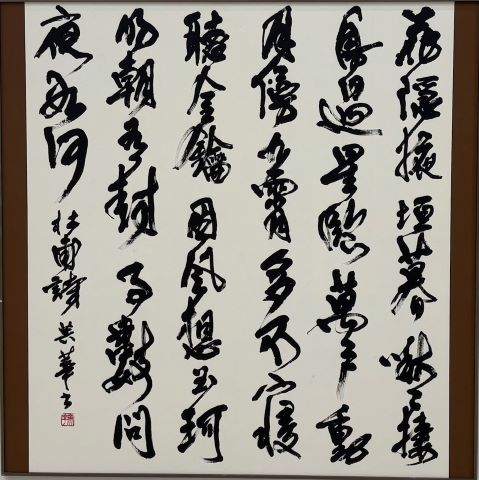 花隱掖垣暮啾々棲
鳥過星臨萬戶動
月傍九霄多不寢
聽金鑰因風想玉珂
明朝有封事數問
夜如何 杜甫詩